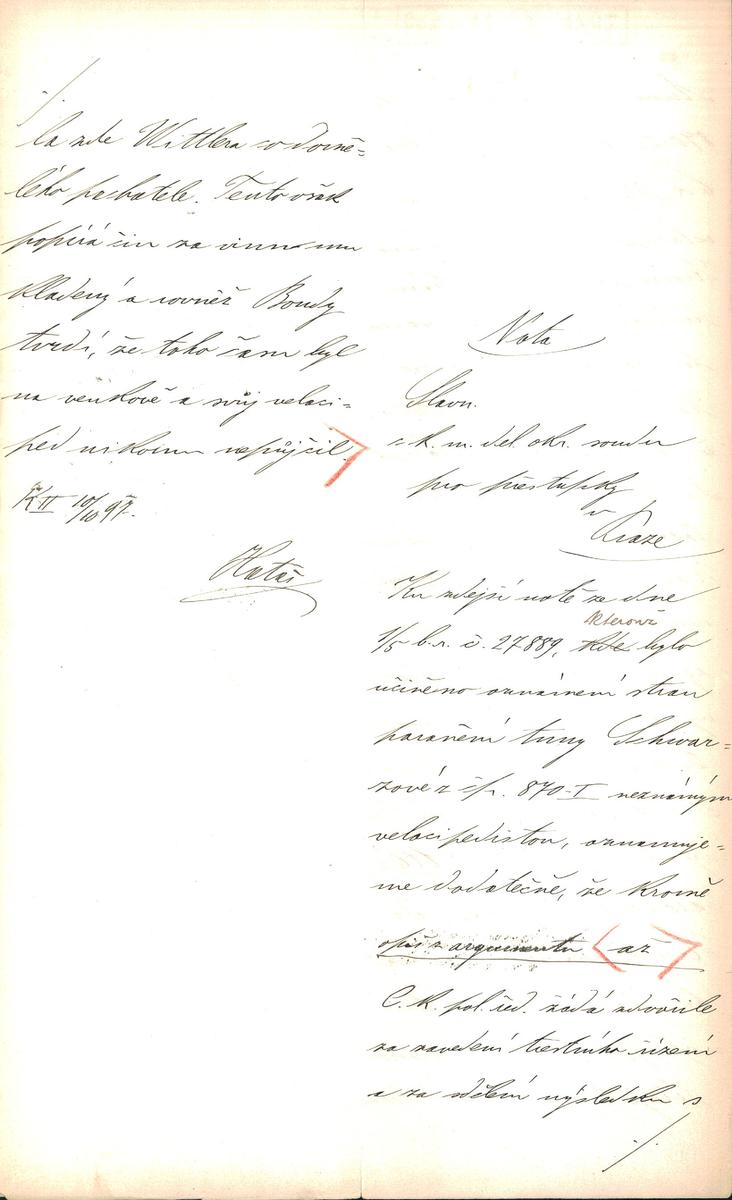 ./.
la zde Wittlera co domně=
lého pachatele. Tento však
popírá čin za vinu mu
kladený a rovněž Bondy
tvrdí, že toho času byl
na venkově a svůj veloci=
ped nikomu nepůjčil.
K II 10/10 97.
Nota
Slavn.
c. k. m. del. okr. soudu
pro přestupky
v
Praze
Ku zdejší notě ze dne
kterouž
1/5 b. r. č. 27889, kde bylo
učiněno oznámení stran
poranění Anny Schwar=
zové z čp. 870-I neznámým
velocipedistou, oznamuje=
me dodatečně, že kromě
opiš z argumentu < až >
C. k. pol. řed. žádá zdvořile
za zavedení trestního řízení
a za sdělení výsledku s
./.